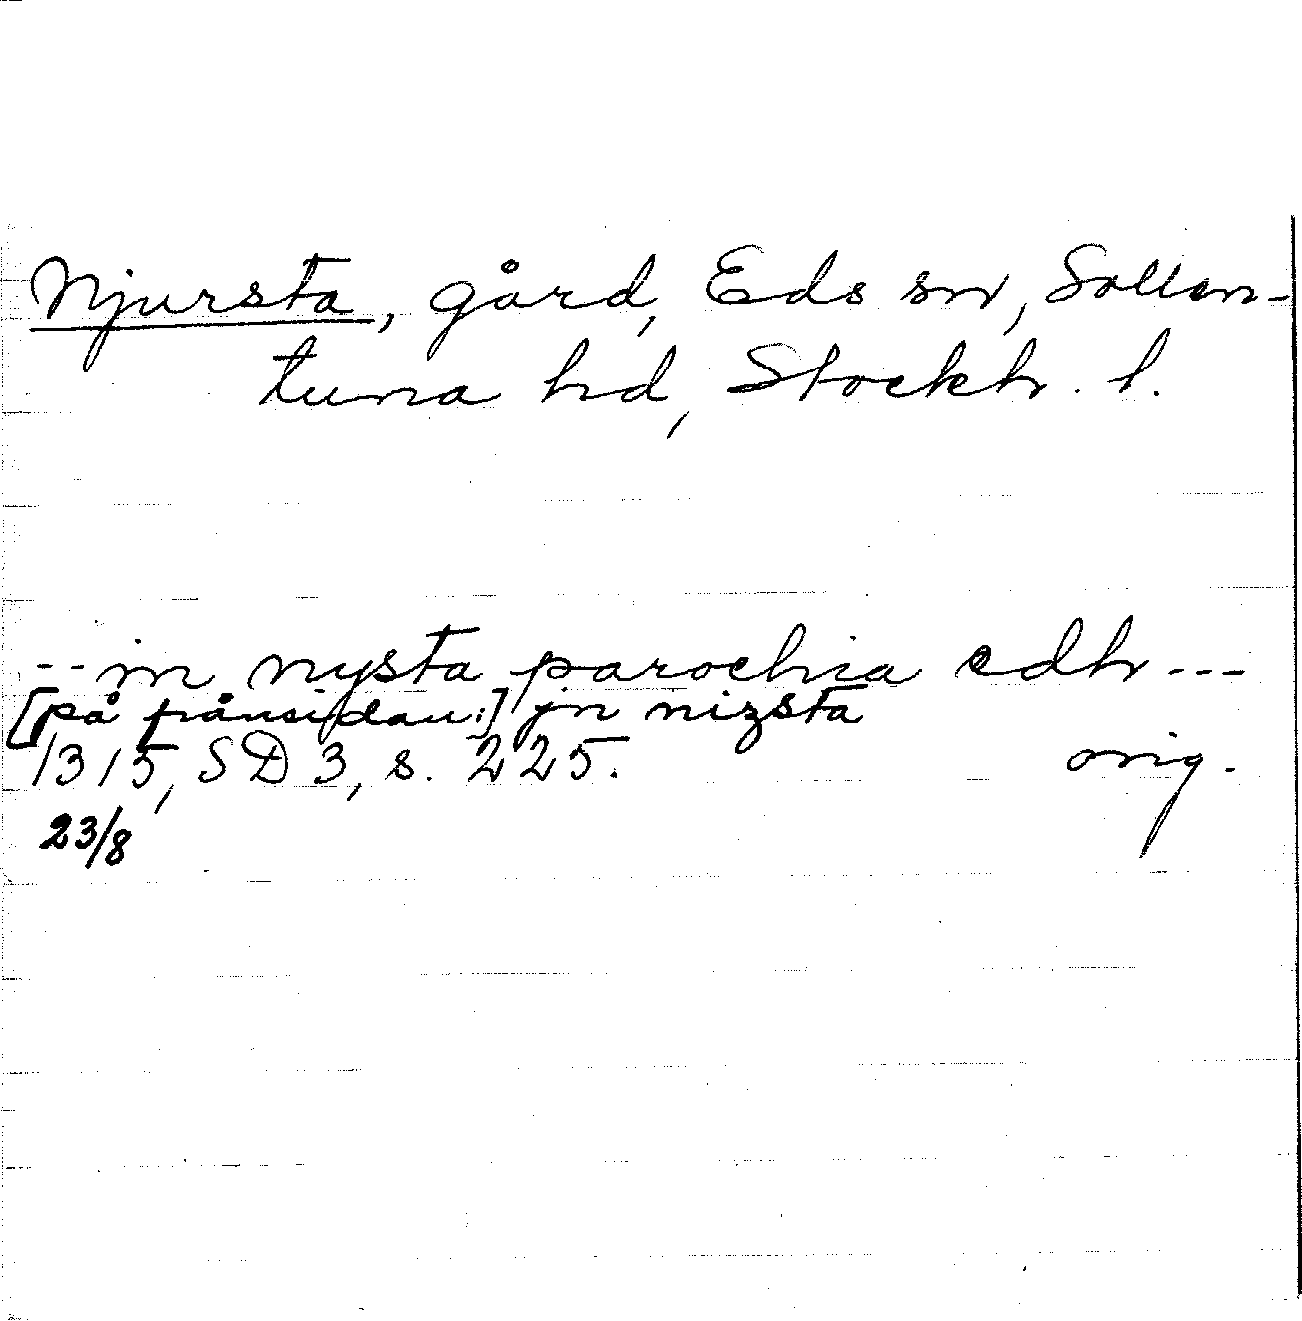 Njursta, gård, Eds sn, Sollen-
tuna hd, Stockh. l.
-- in nysta parochia edh ---
[på frånsidan:] jn nizsta
1315, SD 3, s. 225. orig.
23/8